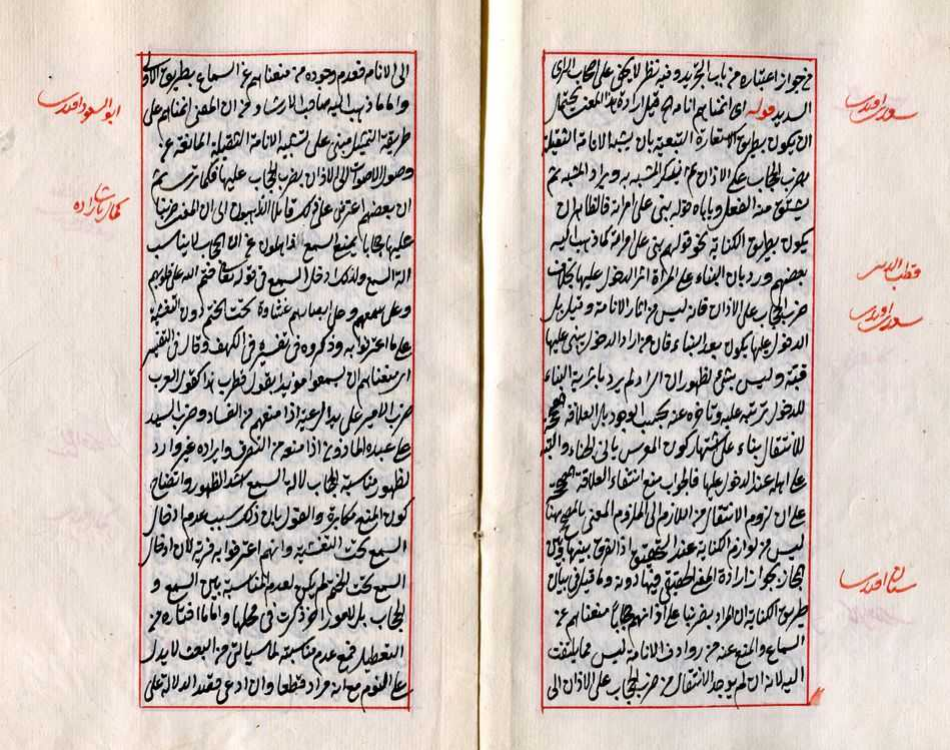 من جواز اعتباره من باب التجريد وفيه نظر لا يخفى على اصحاب الرأى
السديد قوله اى انمناهم انامة اه قيل ارادة هذا المعنى يحتمل
ان يكون بطريق الاستعارة التبعية بان يشبه الانامة الثقيلة
بضرب الحجاب على الاذان ثم يذكر المشبه به ويراد المشبه ثم
يشتق منه الفعل وياباه قوله بنى على امرأته فالظاهر ان
يكون بطريق الكناية نحو قولهم بنى على امرأته كما ذهب اليه
بعضهم ورد بان البناء على المرأة اثر الدخول عليها بخلاف
ضرب الحجاب على الاذان فانه ليس من اثار الانامة وقيل بل
الدخول عليها يكون بعد البناء فان من اراد الدخول يبنى عليها
قبة وليس بشئ لظهور ان المراد لم يرد باثرية البناء
للدخول ترتبه عليه وتاخره عنه بحسب الوجود بل العلاقة المصححة
للانتقال بناء على اشتهار كون العروس ياتى الخباء والقبة
على اهله عند الدخول عليها فالجواب منع انتفاء العلاقة المصححة
على ان لزوم الانتقال من اللازم الى الملزوم المعنى بالمصحح هنا
ليس من لوازم الكناية عند المحققين اذ الفرق بينها وبين
المجاز بجواز ارادة المعنى الحقيقى فيها دونه وما قيل فى بيان
طريق الكناية ان المراد بضربنا على اذانهم حجابا منعناهم عن
السماع والمنع عنه من روادف الانامة ليس مما يلتفت
اليه لانه ان لم يوجد الانتقال من ضرب الحجاب على الاذان الى
سعدى افندى
قطب الدين
سعدى افندى
سنان افندى
الى الانام فعدم وجوده من منعناهم عن السماع بطريق الاولى
واما ما ذهب اليه صاحب الارشاد من ان المعنى انمناهم على
طريقة التمثيل مبنى على تشبيه الانامة الثقيلة المانعة عن
وصول الاصوات الى الاذان بضرب الحجاب عليها فكما ترى ثم
ان بعضهم اعترض على ذلك قائلا الذاهبون الى ان المعنى ضربنا
عليها حجابا يمنع السمع الذاهلون عن ان الحجاب لا يناسب
الة السمع ولذلك ادخل السمع فى قوله تعالى ختم الله على قلوبهم
وعلى سمعهم وعلى ابصارهم غشاوة تحت الختم دون التغشية
على ما اعترفوا به وذكروه فى تفسيره فى الكهف وقال فى التفسير
اى منعناهم ان يسمعوا مويدا بقول قطرب هذا كقول العرب
ضرب الامير على يد الرعية اذا منعهم من الفساد وضرب السيد
على عبده الماذون اذا منعه من التصرف وايراده غير وارد
لظهور مناسبة الحجاب لالة السمع اشد الظهور واتضاح
كون المنع مكابرة والقول بان ذلك سبب عدم ادخال
السمع تحت التغشية وانهم اعترفوا به فرية لان ادخال
السمع تحت الختم لم يكن لعدم المناسبة بين السمع و
الحجاب بل لامور اخر ذكرت فى محلها واما ما اختاره من
التعطيل فمع عدم مناسبته لما سياتى من البعث لا يدل
على النوم مع انه مراد قطعا وان ادعى فقد الدلالة على
ابو السعود افندى
كمال باشا زاده